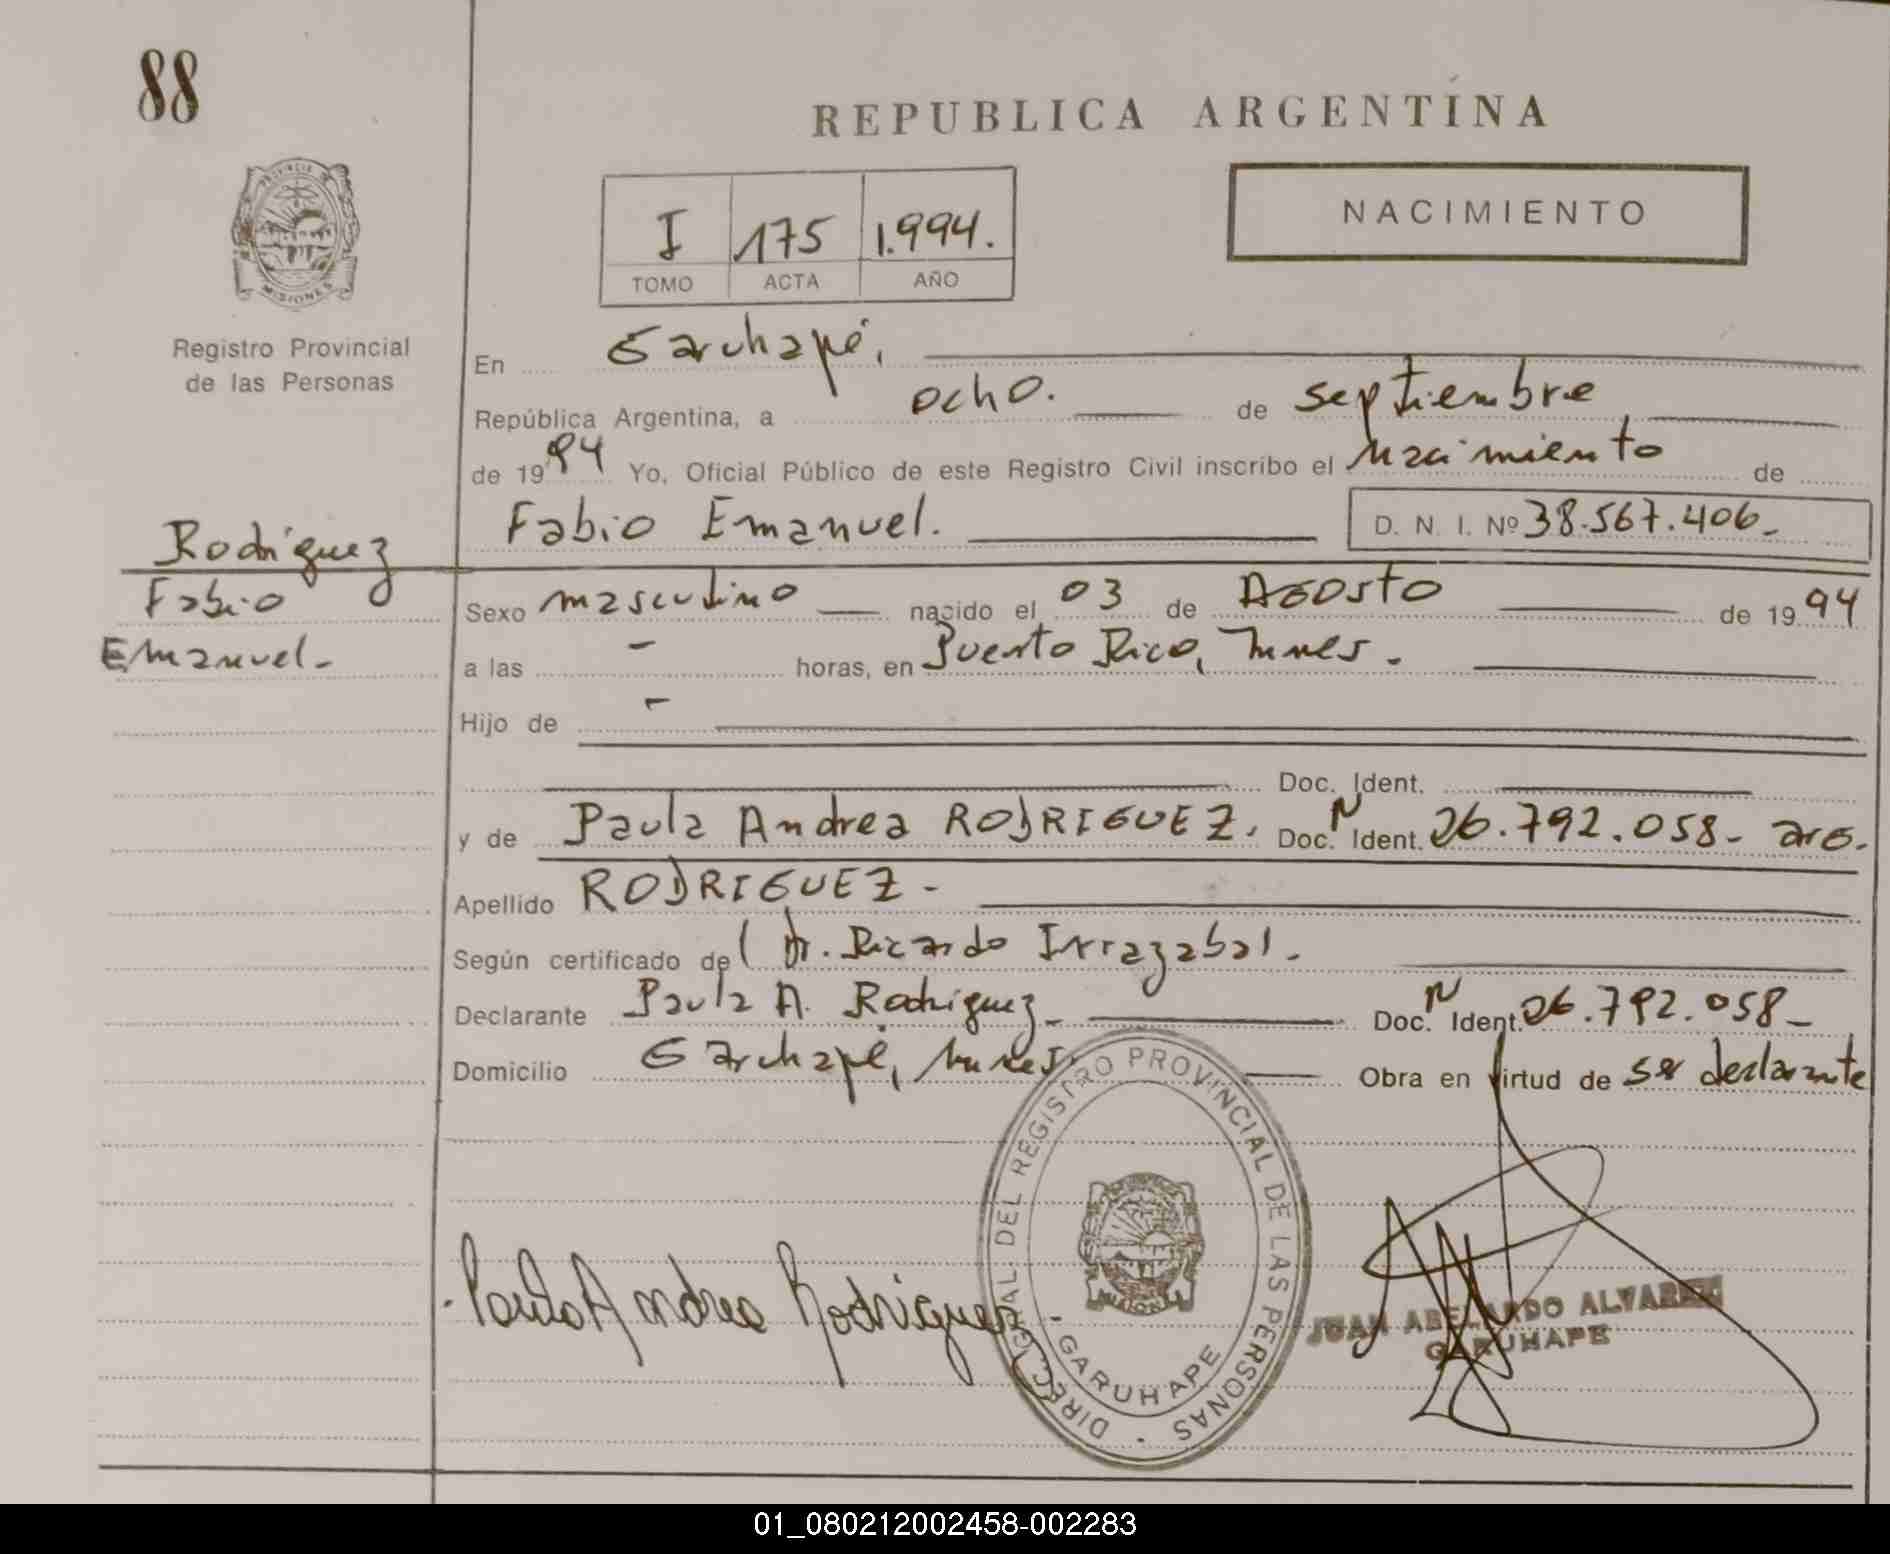 88
REPUBLICA ARGENTINA
PROVINCIA DE
MISIONES
I 175 1.994.
TOMO ACTA AÑO
NACIMIENTO
Registro Provincial
de las Personas
En Garuhapé,
República Argentina, a ocho. de septiembre
de 1994 Yo, Oficial Público de este Registro Civil inscribo el nacimiento de
Fabio Emanuel. D. N. I. Nº 38.567.406-
Rodriguez
Fabio
Emanuel-
Sexo masculino nacido el 03 de Agosto de 1994
a las - horas, en Puerto Rico, Mnes.
Hijo de -
Doc. Ident.
y de Paula Andrea RODRIGUEZ. Doc. N Ident. 26.792.058- arg.
Apellido RODRIGUEZ-
Según certificado de Dr. Ricardo Irrazabal.-
Declarante Paula A. Rodriguez- Doc. N Ident. 26.792.058-
Domicilio Garuhapé, Mnes. Obra en virtud de ser declarante
DIREC. GRAL. DEL REGISTRO PROVINCIAL DE LAS PERSONAS
MISIONES
- GARUHAPE -
Paula Andrea Rodriguez
JUAN ABELARDO ALVAREZ
GARUHAPE
01_080212002458-002283